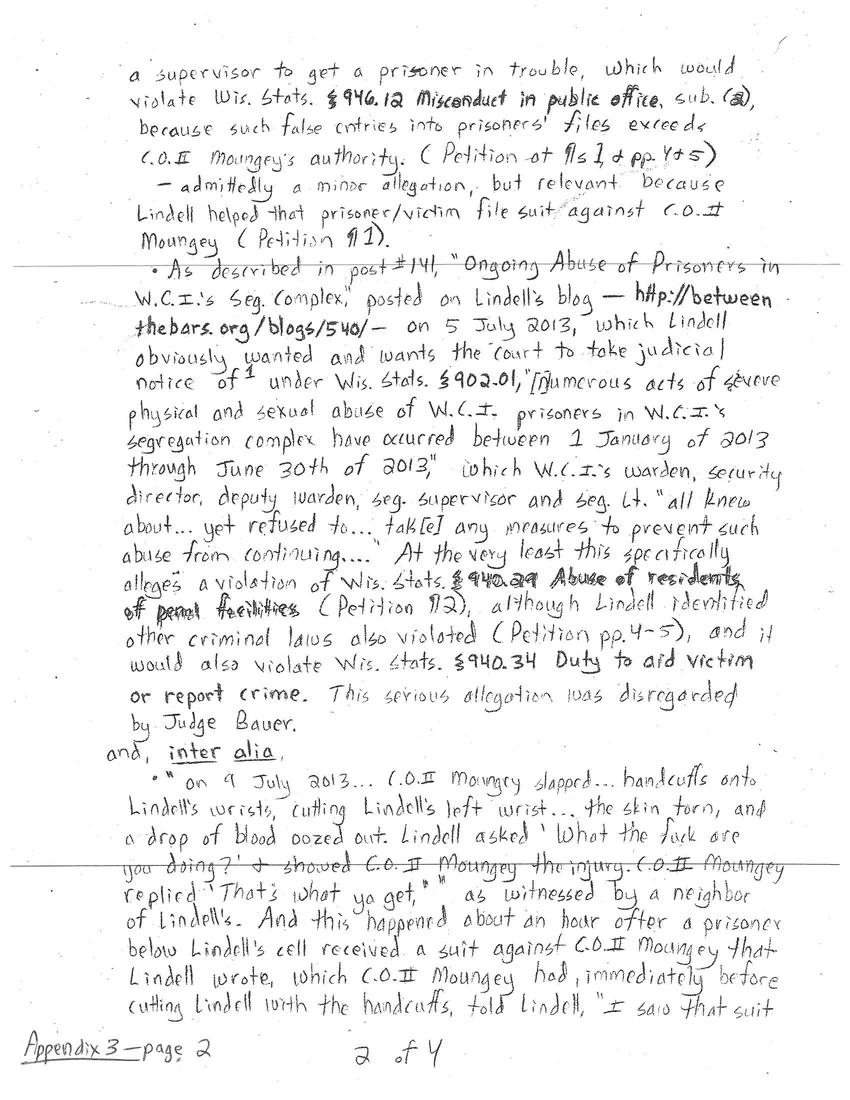 a supervisor to get a prisoner in trouble, which would
violate Wis. Stats. §946.12 Misconduct in public office, sub. (2),
because such false entries into prisoners' files exceeds
C.O.II Moungey's authority. (Petition at ¶s 1, & pp. 4+5)
— admittedly a minor allegation, but relevant because
Lindell helped that prisoner/victim file suit against C.O.II
Moungey (Petition ¶1).
• As described in post #141, "Ongoing Abuse of Prisoners in
W.C.I.'s Seg. Complex," posted on Lindell's blog — http://between
thebars.org/blogs/540/ — on 5 July 2013, which Lindell
obviously wanted and wants the court to take judicial
notice of¹ under Wis. Stats. §902.01, "[n]umerous acts of severe
physical and sexual abuse of W.C.I. prisoners in W.C.I.'s
segregation complex have occurred between 1 January of 2013
through June 30th of 2013," which W.C.I.'s warden, security
director, deputy warden, seg. supervisor and seg. Lt. "all knew
about... yet refused to... tak[e] any measures to prevent such
abuse from continuing...." At the very least this specifically
alleges a violation of Wis. Stats. §940.29 Abuse of residents
of penal facilities (Petition ¶2), although Lindell identified
other criminal laws also violated (Petition pp. 4-5), and it
would also violate Wis. Stats. §940.34 Duty to aid victim
or report crime. This serious allegation was disregarded
by Judge Bauer.
and, inter alia,
• "on 9 July 2013... C.O.II Moungey slapped... handcuffs onto
Lindell's wrists, cutting Lindell's left wrist... the skin torn, and
a drop of blood oozed out. Lindell asked 'What the fuck are
you doing?' & showed C.O.II Moungey the injury. C.O.II Moungey
replied 'That's what ya get,'" as witnessed by a neighbor
of Lindell's. And this happened about an hour after a prisoner
below Lindell's cell received a suit against C.O.II Moungey that
Lindell wrote, which C.O.II Moungey had, immediately before
cutting Lindell with the handcuffs, told Lindell, "I saw that suit
Appendix 3—page 2
2 of 4